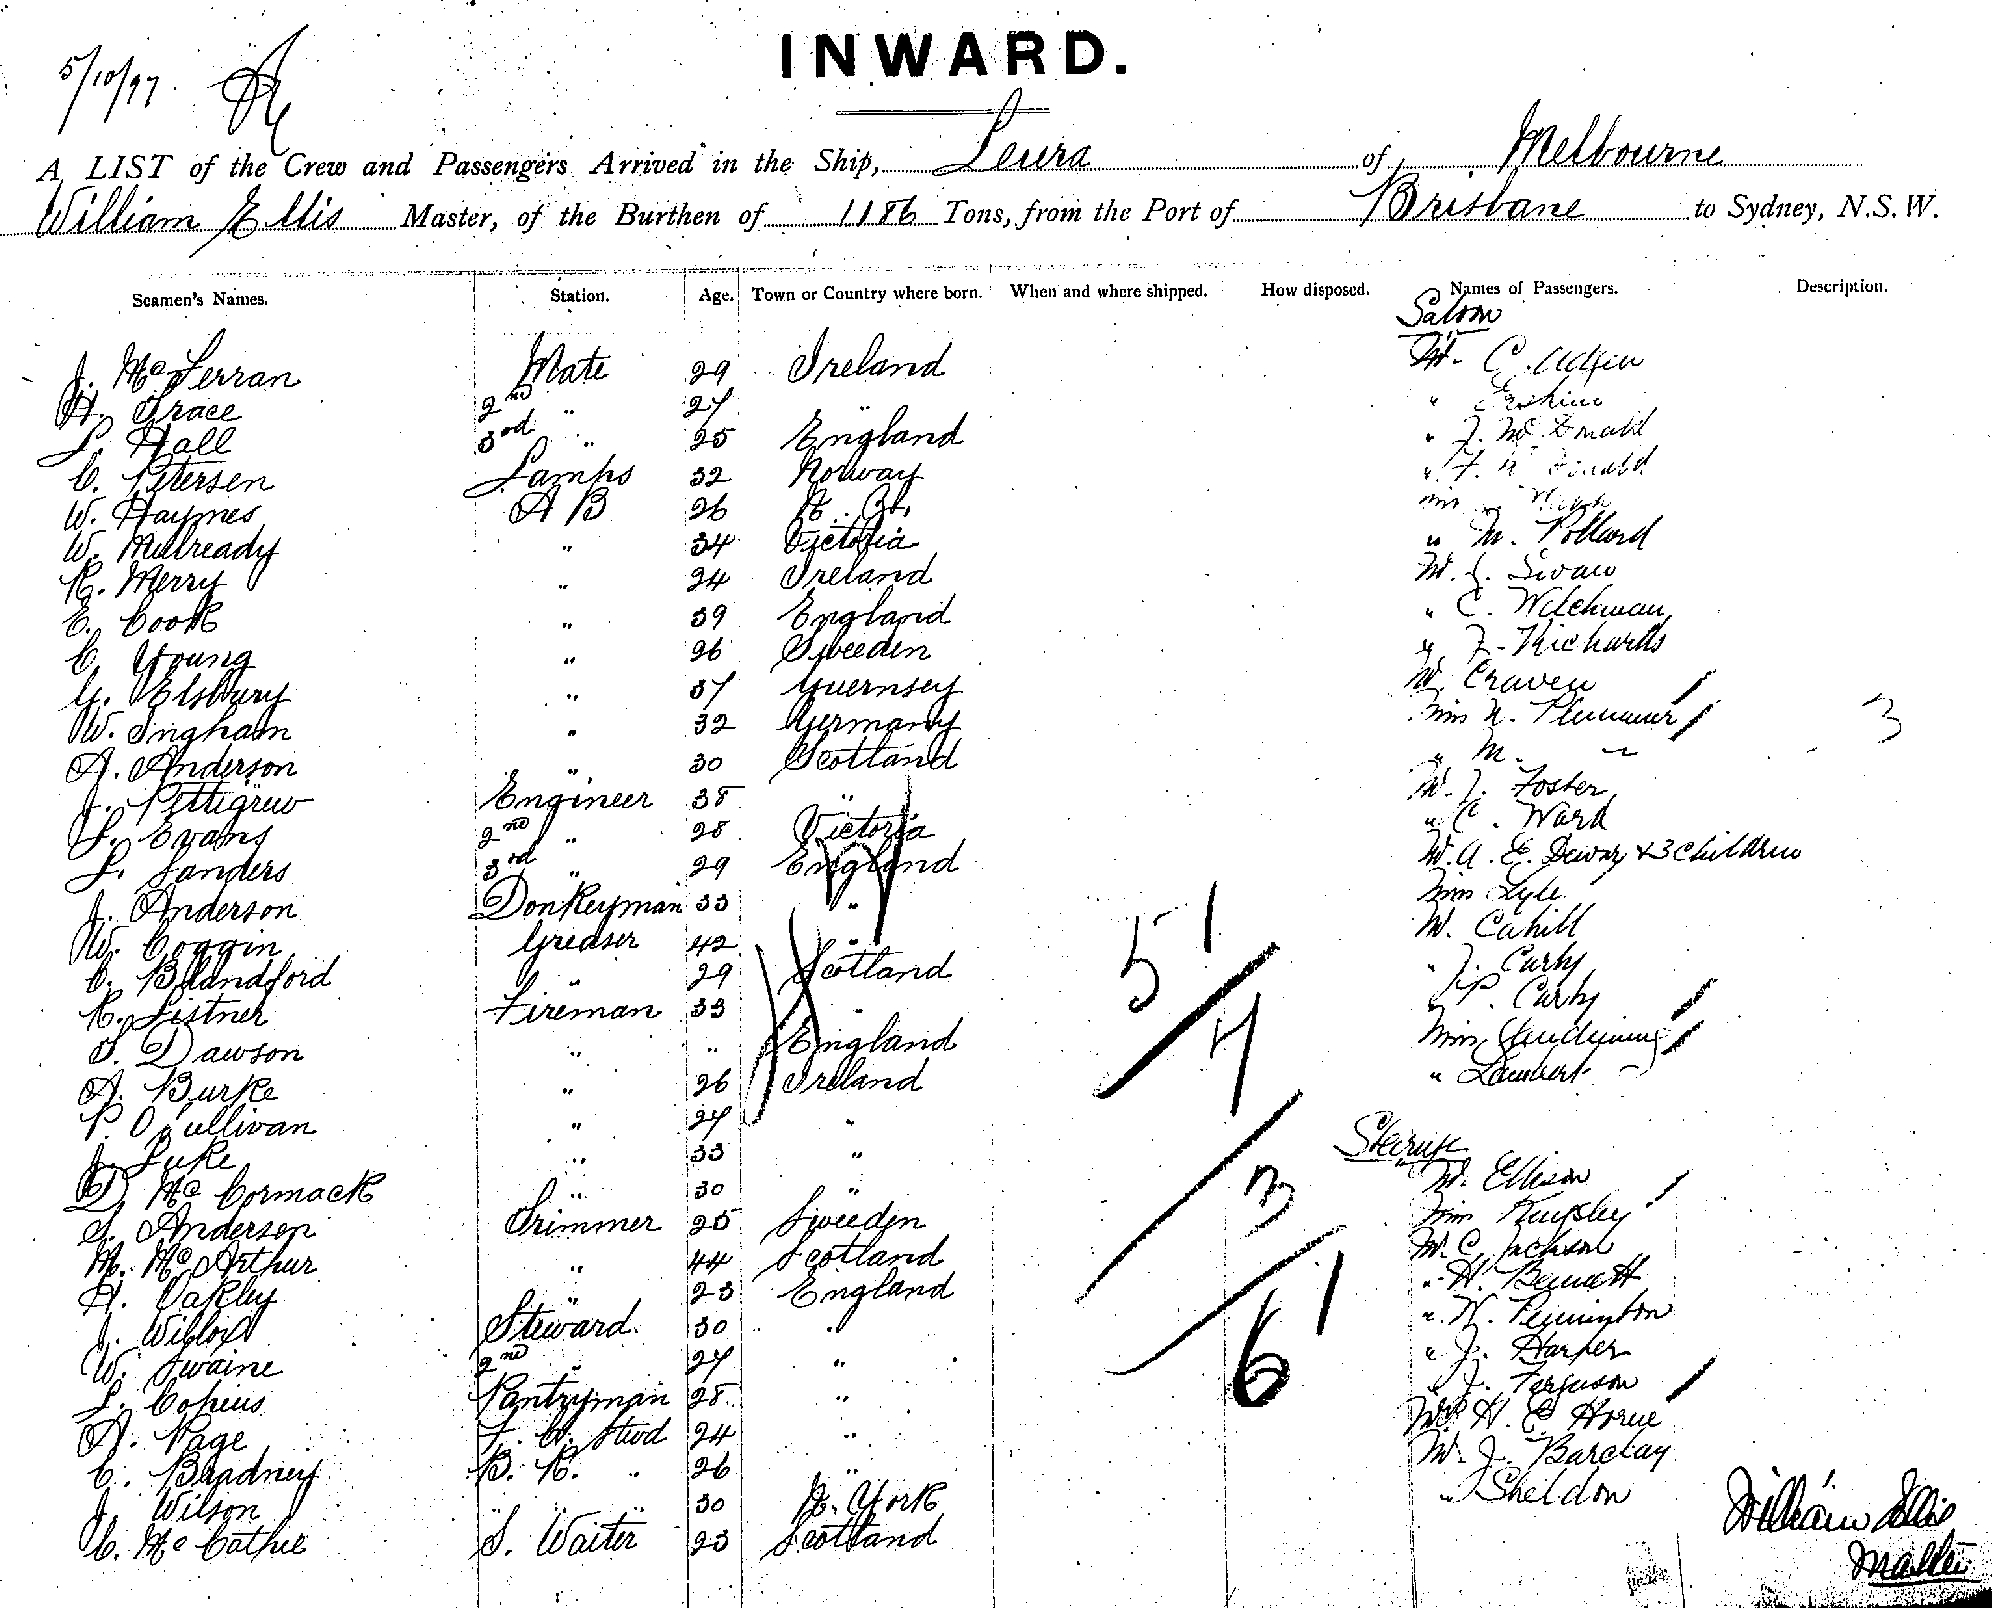 INWARD.
5/10/97.
A LIST of the Crew and Passengers Arrived in the Ship, Leura of Melbourne
William Ellis Master, of the Burthen of 1186 Tons, from the Port of Brisbane to Sydney, N.S.W.
Seamen's Names. Station. Age. Town or Country where born. When and where shipped. How disposed. Names of Passengers. Description.
Saloon
J. Mc Ferran Mate 29 Ireland C.
H. Grace 2nd " 27 " " Erskine
L. Hall 3rd " 25 England " J. McDonald
C. Petersen Lamps 32 Norway " F.
W. Haymes A B 26
W. Mulready " 34 Victoria " M. Pollard
R. Merry " 24 Ireland
E. Cook " 39 England " C. Welchman
C. Young " 26 Sweeden " J. Richards
G. Elsbury " 37 Guernsey Craven
W. Ingham " 32 Germany Miss N. Plummer
A. Anderson " 30 Scotland " M. "
J. Pettigrew Engineer 38 " J. Foster
L. Evans 2nd " 28 Victoria " C. Ward
L. Sanders 3rd " 29 England A. E. Dewar & 3 Children
J. Anderson Donkeyman 33 " Miss Lyle
W. Coggin Greaser 42 " M. Cahill
C. Blandford " 29 Scotland " J. Curly
R. Listner Fireman 33 " " P. Curly
S. Dawson " " England Miss
A. Burke " 26 Ireland " Lambert
P. O'Sullivan " 27 "
J. Luke " 33 " Steerage
D. Mc Cormack " 30 " M. Ellison
S. Anderson Trimmer 25 Sweeden Miss Kingsley
M. Mc Arthur " 44 Scotland M. C. Jackson
A. Oakley " 23 England " H. Bennett
J. Wilcox Steward 30 " " W. Pennington
W. Swaine 2nd " 27 " " J. Harper
L. Copeus Pantryman 28 " " J. Ferguson
A. Page F. C. Stwd 24 " H. C. Horne
C. Bradney B. R. " 26 " M. J. Barclay
J. Wilson " " " 30 N. York " Sheldon
C. Mc Cathie S. Waiter 23 Scotland
51
4
3
61
3
William Ellis
Master